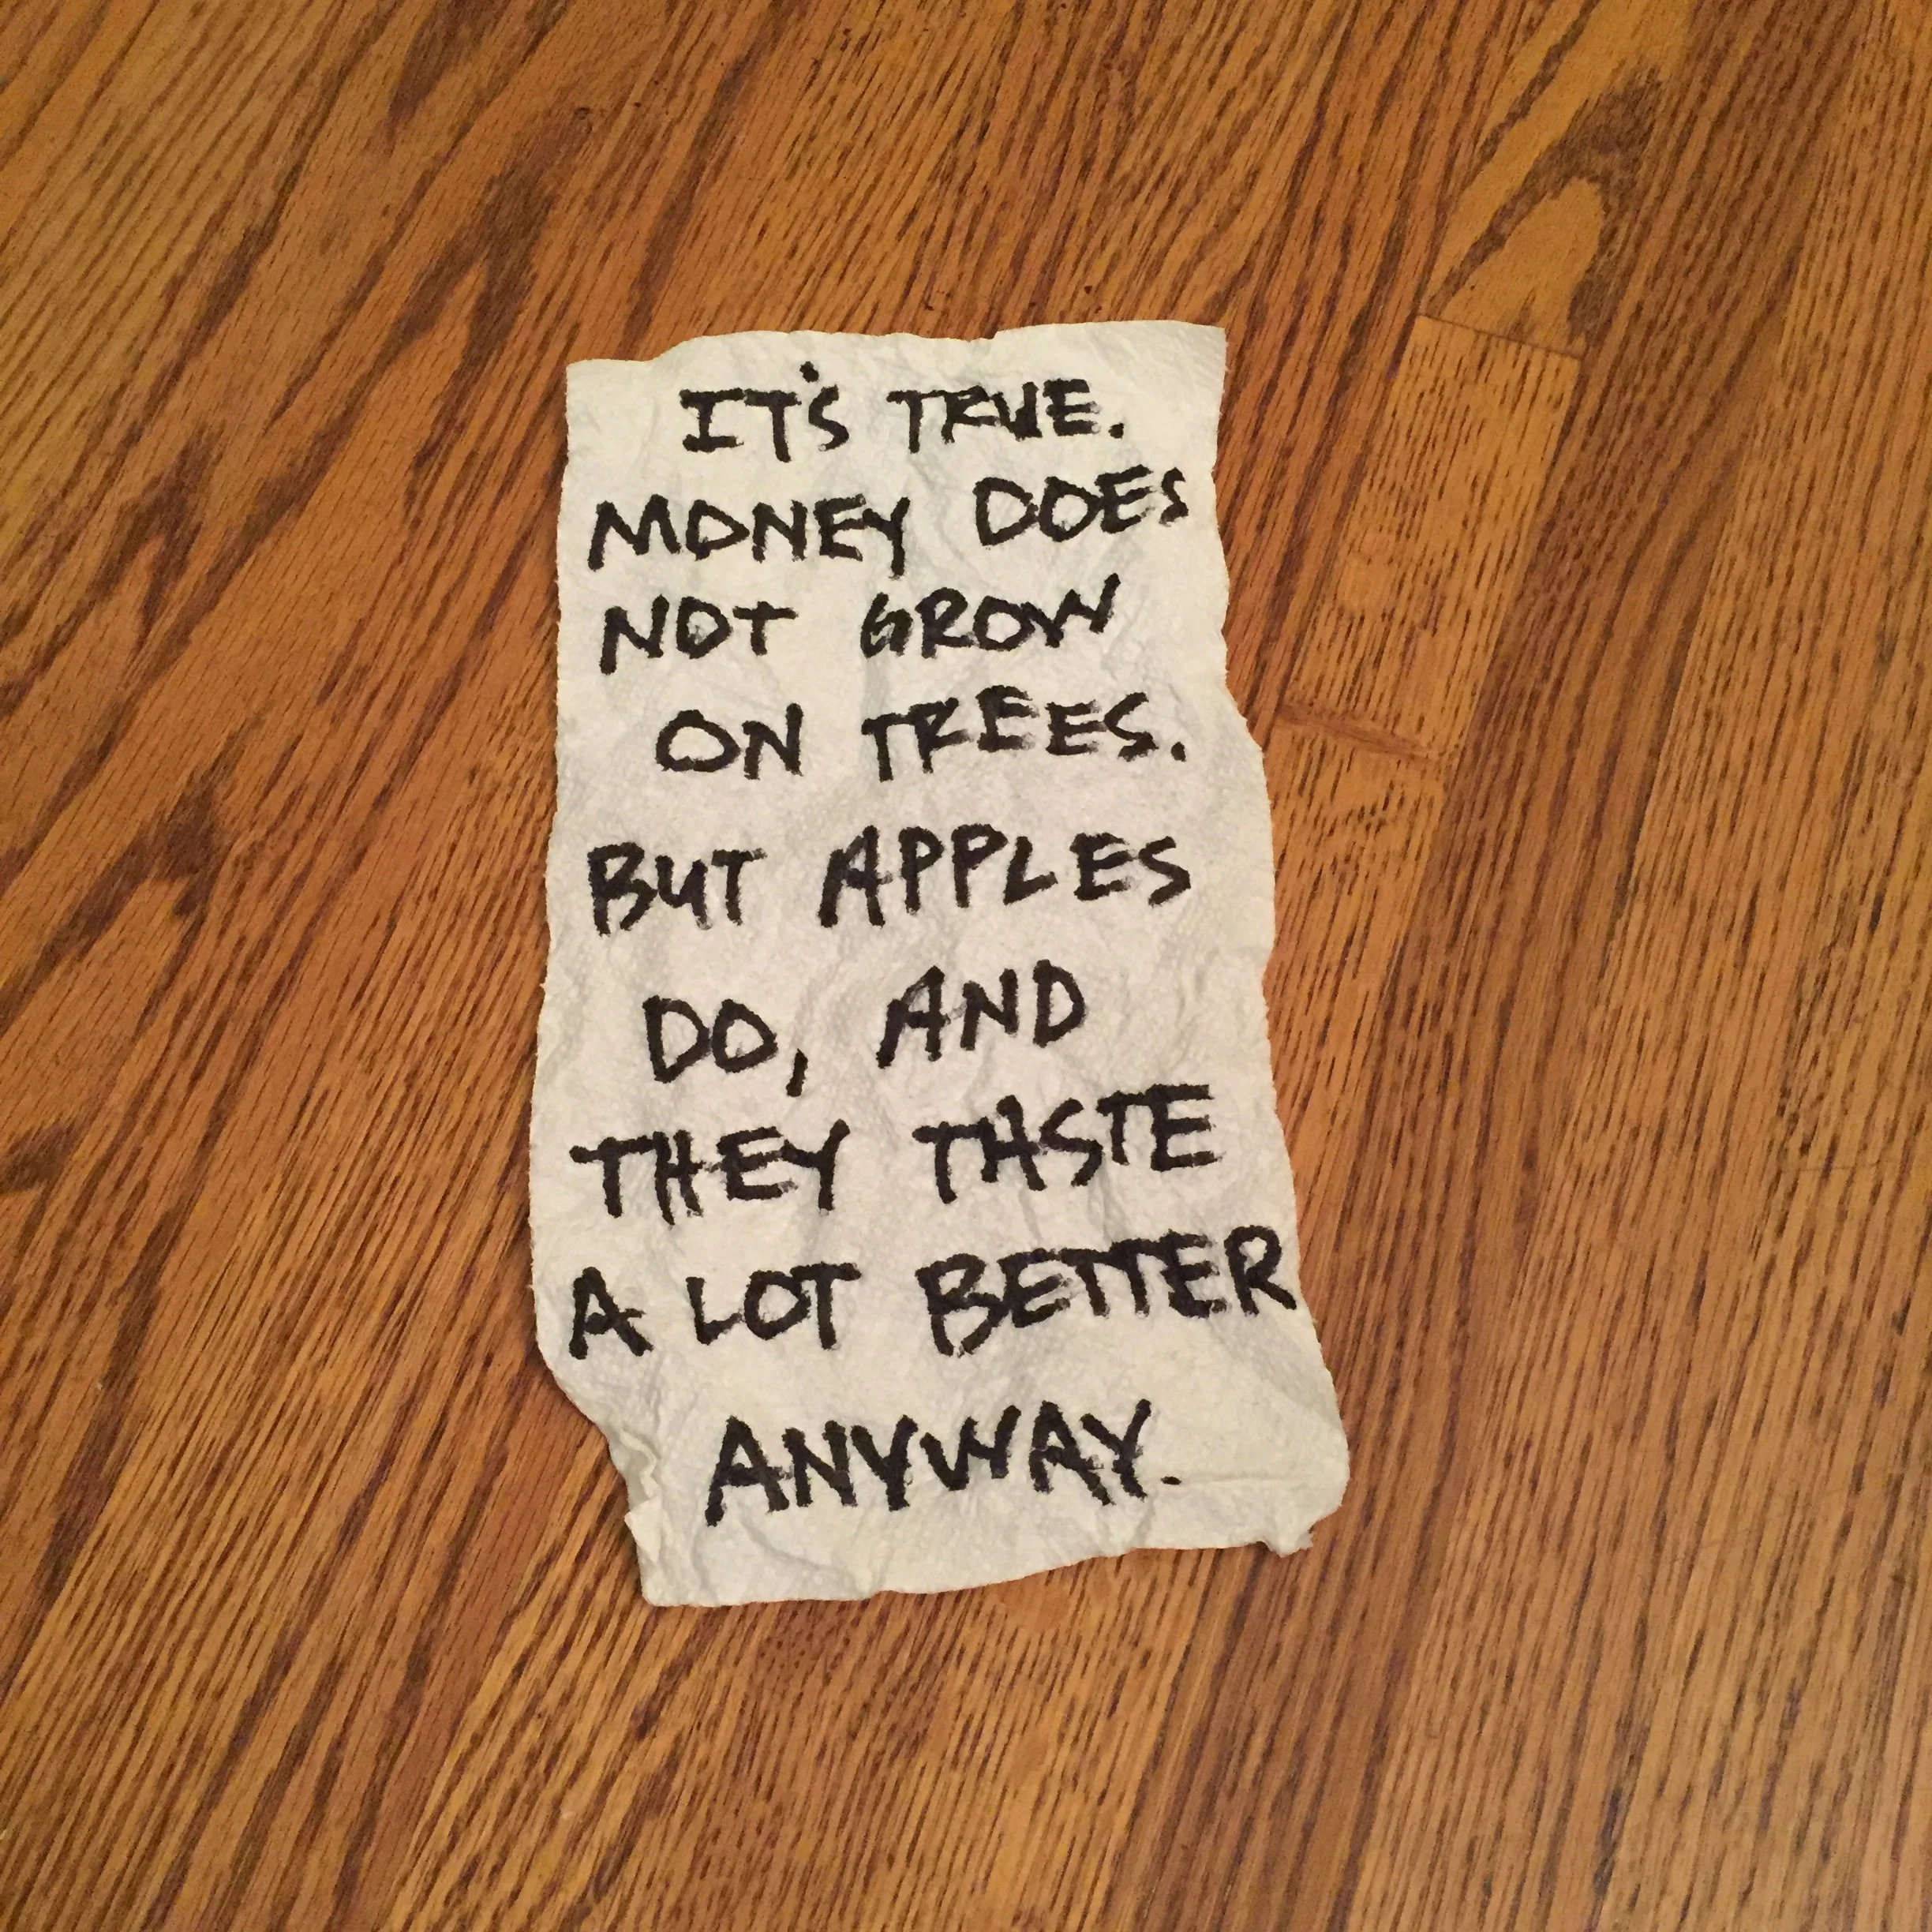 IT'S TRUE.
MONEY DOES
NOT GROW
ON TREES.
BUT APPLES
DO, AND
THEY TASTE
A LOT BETTER
ANYWAY.